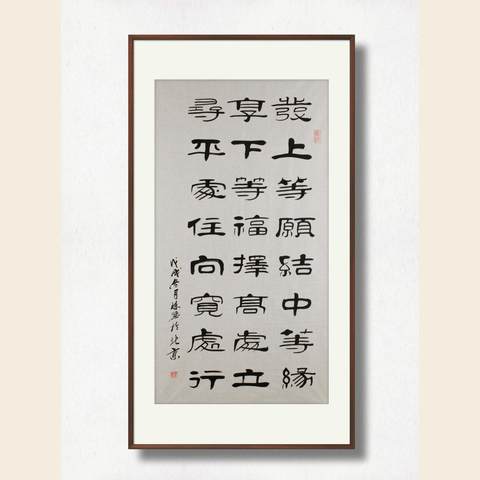 發上等願結中等緣
享下等福擇高處立
尋平處住向寬處行
戊戌於北京